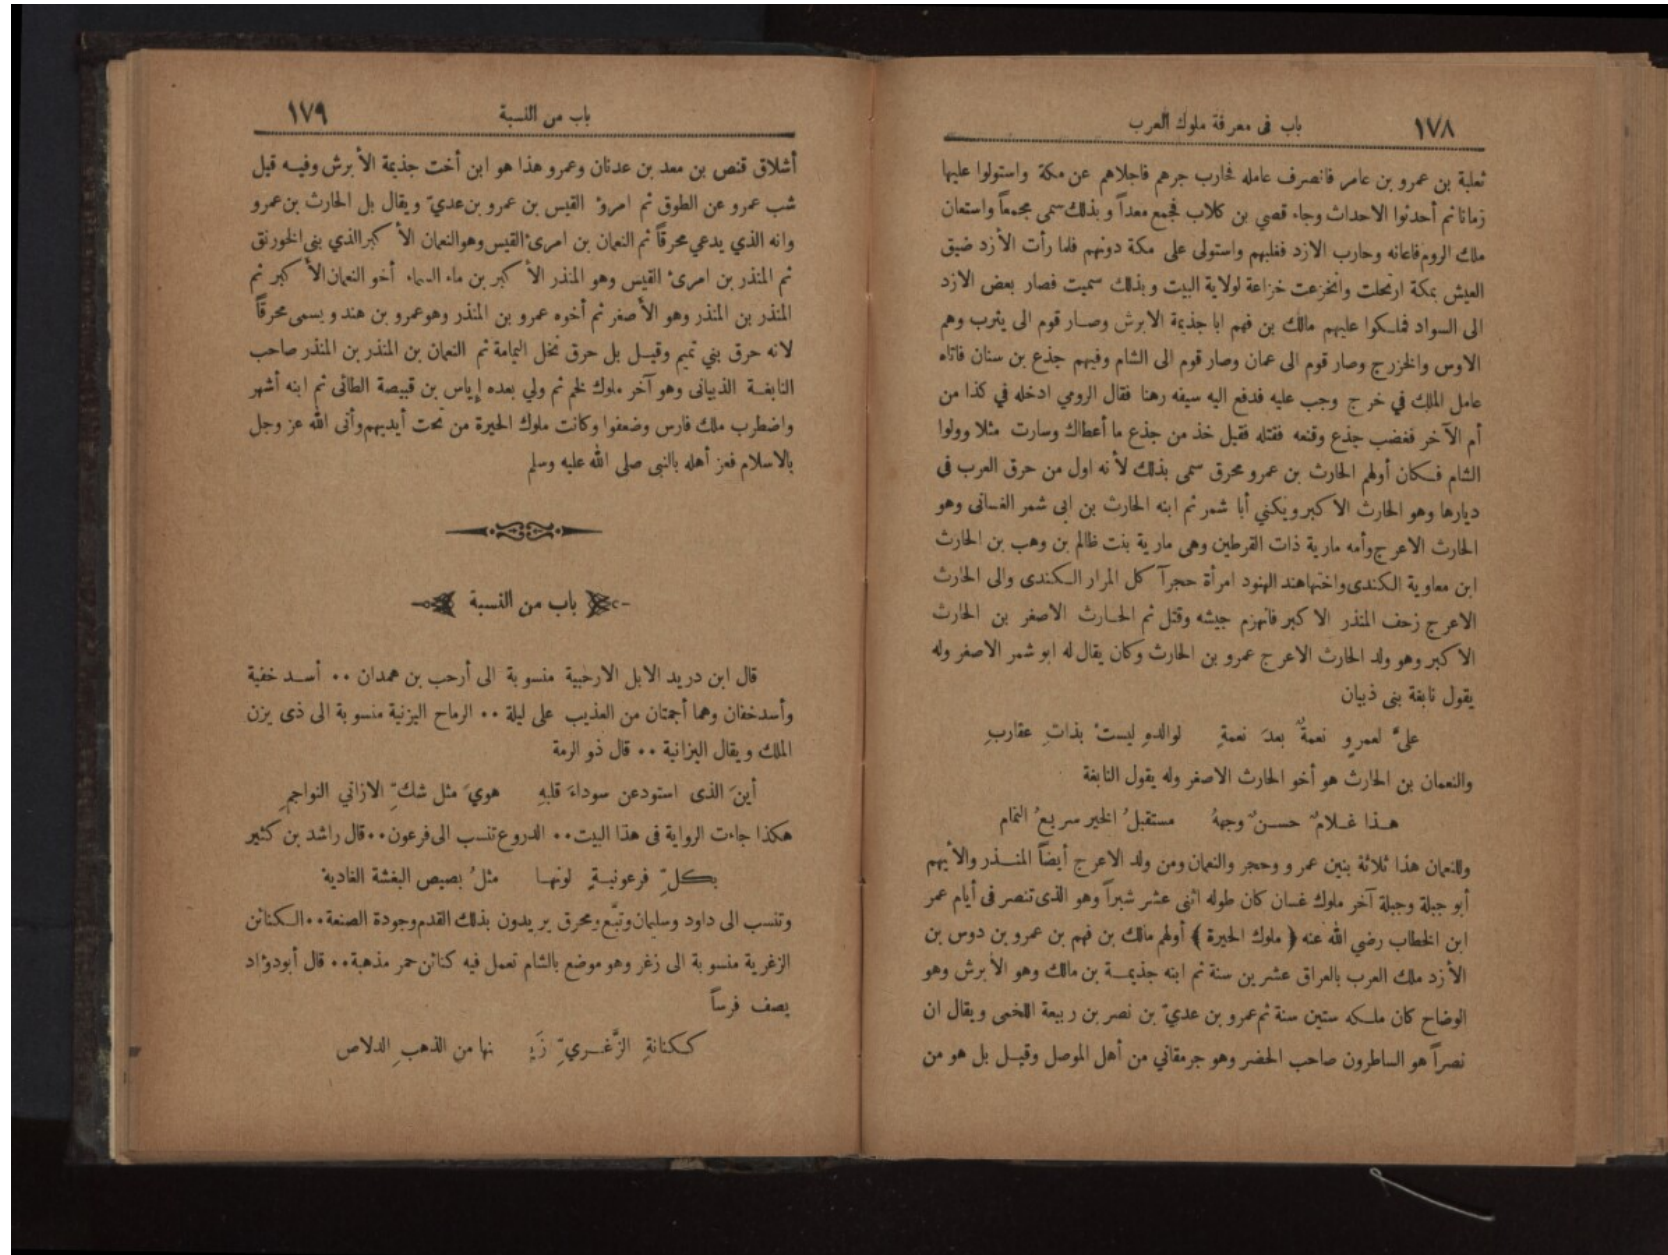 ١٧٨
باب فى معرفة ملوك العرب
ثعلبة بن عمرو بن عامر فانصرف عامله فحارب جرهم فاجلاهم عن مكة واستولوا عليها
زمانا ثم أحدثوا الاحداث وجاء قصي بن كلاب فجمع معداً وبذلك سمى مجمعاً واستعان
ملك الروم فاعانه وحارب الازد فغلبهم واستولى على مكة دونهم فلما رأت الأزد ضيق
العيش بمكة ارتحلت وانخزعت خزاعة لولاية البيت وبذلك سميت فصار بعض الازد
الى السواد فملكوا عليهم مالك بن فهم ابا جذيمة الابرش وصار قوم الى يثرب وهم
الاوس والخزرج وصار قوم الى عمان وصار قوم الى الشام وفيهم جذع بن سنان فاتاه
عامل الملك في خرج وجب عليه فدفع اليه سيفه رهنا فقال الرومي ادخله في كذا من
أم الآخر فغضب جذع وقنعه فقتله فقيل خذ من جذع ما أعطاك وسارت مثلا وولوا
الشام فكان أولهم الحارث بن عمرو محرق سمى بذلك لأنه اول من حرق العرب فى
ديارها وهو الحارث الاكبر ويكني أبا شمر ثم ابنه الحارث بن ابى شمر الغسانى وهو
الحارث الاعرج وأمه مارية ذات القرطين وهى مارية بنت ظالم بن وهب بن الحارث
ابن معاوية الكندى واختها هند الهنود امرأة حجرآ كل المرار الكندى والى الحارث
الاعرج زحف المنذر الاكبر فانهزم جيشه وقتل ثم الحارث الاصغر بن الحارث
الاكبر وهو ولد الحارث الاعرج عمرو بن الحارث وكان يقال له ابو شمر الاصغر وله
يقول نابغة بنى ذبيان
علىَّ لعمرٍو نعمةٌ بعدَ نعمةٍ لوالدهِ ليستْ بذاتِ عقاربِ
والنعمان بن الحارث هو أخو الحارث الاصغر وله يقول النابغة
هذا غلامٌ حسنٌ وجههُ مستقبلُ الخير سريعُ التمام
وللنعمان هذا ثلاثة بنين عمرو وحجر والنعمان ومن ولد الاعرج أيضاً المنذر والأيهم
أبو جبلة وجبلة آخر ملوك غسان كان طوله اثنى عشر شبراً وهو الذى تنصر فى أيام عمر
ابن الخطاب رضي الله عنه ﴿ ملوك الحيرة ﴾ أولهم مالك بن فهم بن عمرو بن دوس بن
الأزد ملك العرب بالعراق عشرين سنة ثم ابنه جذيمة بن مالك وهو الأبرش وهو
الوضاح كان ملكه ستين سنة ثم عمرو بن عديّ بن نصر بن ربيعة اللخمى ويقال ان
نصراً هو الساطرون صاحب الحضر وهو جرمقاني من أهل الموصل وقيل بل هو من
باب من النسبة
١٧٩
أشلاق قنص بن معد بن عدنان وعمرو هذا هو ابن أخت جذيمة الأبرش وفيه قيل
شب عمرو عن الطوق ثم امروٴ القيس بن عمرو بن عديّ ويقال بل الحارث بن عمرو
وانه الذي يدعي محرقاً ثم النعمان بن امرئ القيس وهو النعمان الأكبر الذي بنى الخورنق
ثم المنذر بن امرئ القيس وهو المنذر الأكبر بن ماء السماء أخو النعمان الأكبر ثم
المنذر بن المنذر وهو الأصغر ثم أخوه عمرو بن المنذر وهو عمرو بن هند ويسمى محرقاً
لانه حرق بني تميم وقيل بل حرق نخل اليمامة ثم النعمان بن المنذر بن المنذر صاحب
النابغة الذبيانى وهو آخر ملوك لخم ثم ولي بعده إياس بن قبيصة الطائى ثم ابنه أشهر
واضطرب ملك فارس وضعفوا وكانت ملوك الحيرة من تحت أيديهم وأتى الله عز وجل
بالاسلام فعز أهله بالنبى صلى الله عليه وسلم
باب من النسبة
قال ابن دريد الابل الارحبية منسوبة الى أرحب بن همدان ٠٠ أسد خفية
وأسد خفان وهما أجمتان من العذيب على ليلة ٠٠ الرماح اليزنية منسوبة الى ذى يزن
الملك ويقال اليزانية ٠٠ قال ذو الرمة
أينَ الذى استودعن سوداءَ قلبهِ هويً مثل شكِّ الازاني النواجمِ
هكذا جاءت الرواية فى هذا البيت ٠٠ الدروع تنسب الى فرعون ٠٠ قال راشد بن كثير
بكلِّ فرعونيةٍ لونها مثلُ بصيص البغشة الغاديه
وتنسب الى داود وسليمان وتبَّع ومحرق يريدون بذلك القدم وجودة الصنعة ٠٠ الكنائن
الزغرية منسوبة الى زغر وهو موضع بالشام تعمل فيه كنائن حمر مذهبة ٠٠ قال أبو دوٴاد
يصف فرساً
ككنانةِ الزُّغريِّ زَيـ نها من الذهبِ الدلاص